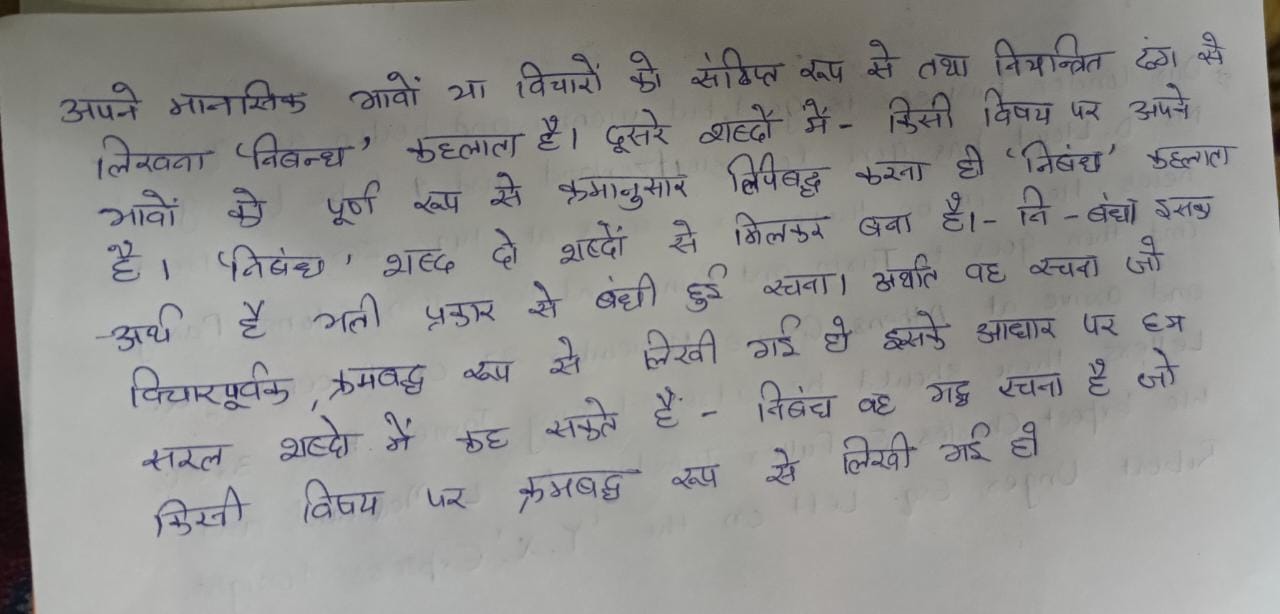 अपने मानसिक भावों या विचारों को संक्षिप्त रूप से तथा नियन्त्रित ढंग से
लिखना 'निबन्ध' कहलाता है। दूसरे शब्दों में - किसी विषय पर अपने
भावों को पूर्ण रूप से क्रमानुसार लिपिबद्ध करना ही 'निबंध' कहलाता
है। 'निबंध' शब्द दो शब्दों से मिलकर बना है।- नि - बंध। इसका
अर्थ है भली प्रकार से बंधी हुई रचना। अर्थात वह रचना जो
विचारपूर्वक, क्रमबद्ध रूप से लिखी गई हो इसके आधार पर हम
सरल शब्दो में कह सकते हैं - निबंध वह गद्य रचना है जो
किसी विषय पर क्रमबद्ध रूप से लिखी गई हो